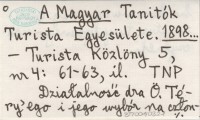 A Magyar Tanitók
Turista Egyesülete. 1898...
- Turista Közlöny 5,
nr 4: 61-63, il. TNP
Działalność dra Ö. Té-
ry'ego i jego wybór na człon-